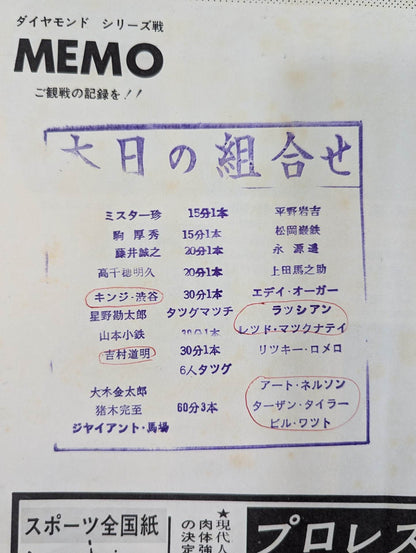 ダイヤモンド シリーズ戦
MEMO
ご観戦の記録を!!
本日の組合せ
ミスター珍 15分1本 平野岩吉
駒厚秀 15分1本 松岡巌鉄
藤井誠之 20分1本 永源遥
高千穂明久 20分1本 上田馬之助
キンジ・渋谷 30分1本 エデイ・オーガー
星野勘太郎 タツグマツチ ラツシアン
山本小鉄 30分1本 レツド・マツクナテイ
吉村道明 30分1本 リツキー・ロメロ
6人タツグ
大木金太郎 アート・ネルソン
猪木完至 60分3本 ターザン・タイラー
ジヤイアント・馬場 ビル・ワツト
スポーツ全国紙
★現代人
肉体強
の決定
プロレス